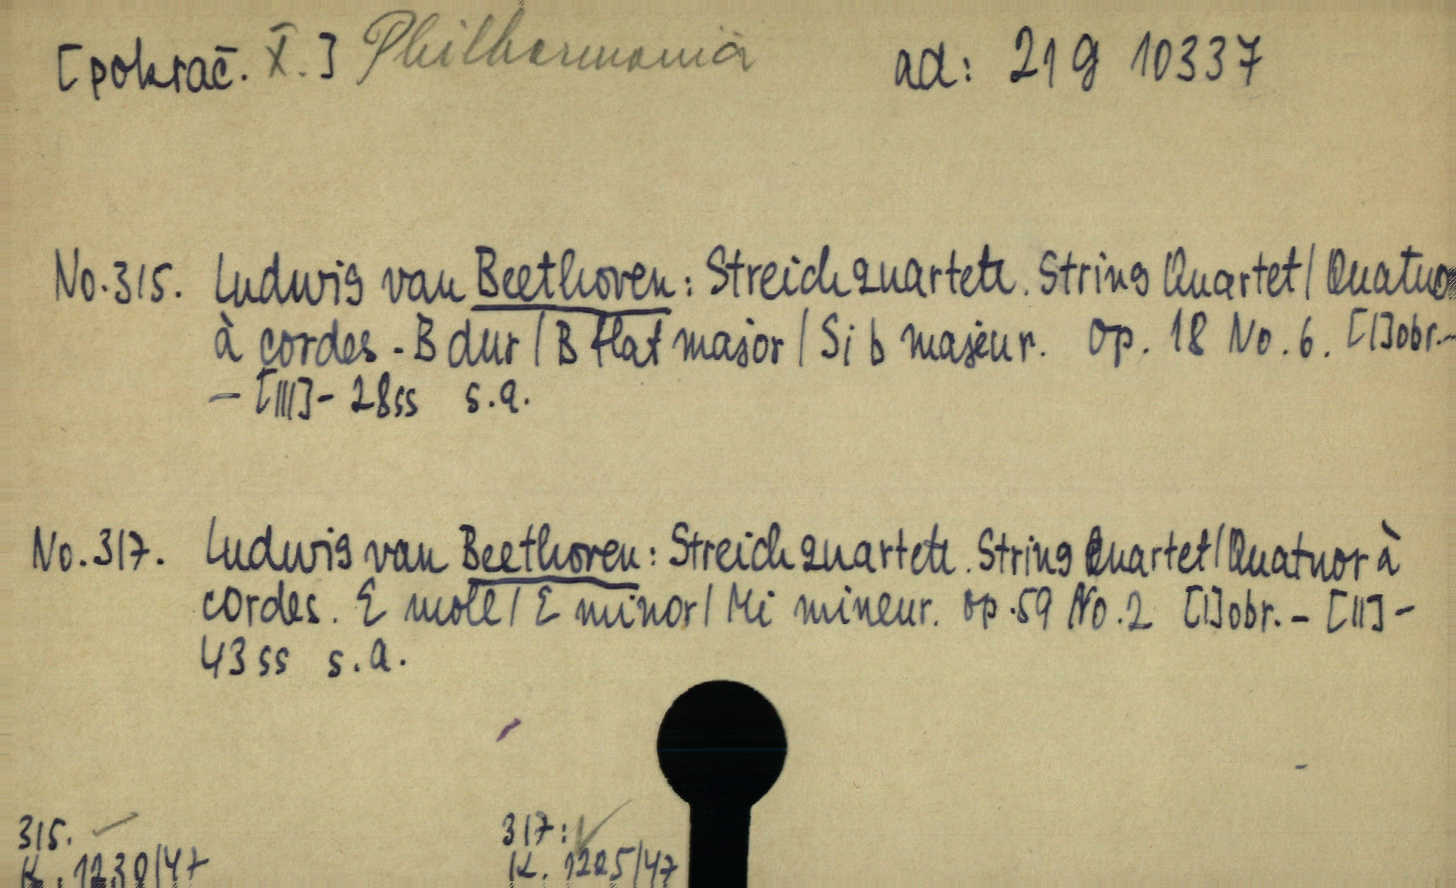 [pokrač. X.] Philharmonia ad: 21 g 10337
No. 315. Ludwig van Beethoven: Streichquartett. String Quartet / Quatuor
à cordes - B dur / B flat major / Si b majeur. Op. 18 No. 6. [I] obr. -
- [III] - 28 ss s. a.
No. 317. Ludwig van Beethoven: Streichquartett. String Quartet / Quatuor à
cordes. E moll / E minor / Mi mineur. op. 59 No. 2 [I] obr. - [II] -
43 ss s. a.
315. 317:
K. 1230/47 K. 1225/47